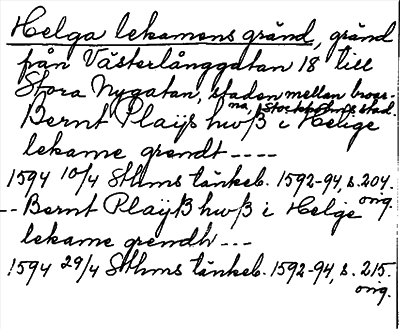 Helga lekamens gränd, gränd
från Västerlånggatan 18 till
Stora Nygatan, staden mellan broar-
na, Stockholms stad.
Bernt Plaÿs hwß i Helige
lekame grendt ----
1594 10/4 Sthms tänkeb. 1592-94, s. 204.
orig.
--Bernt Plaÿß hwß i Helige
lekame grendh ---
1594 29/4 Sthms tänkeb. 1592-94, s. 215.
orig.